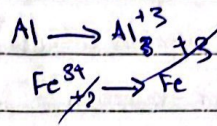 Al → Al₃⁺³ +3
Fe³⁺ +2 → Fe